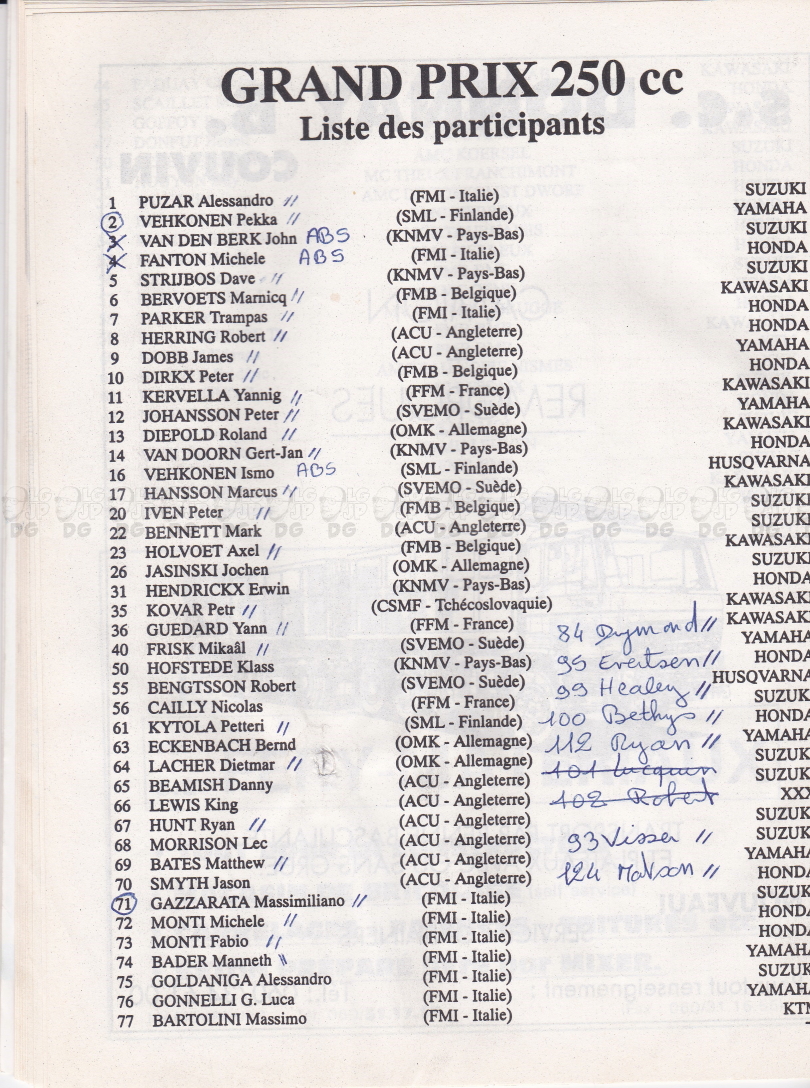 GRAND PRIX 250 cc
Liste des participants
1 PUZAR Alessandro // (FMI - Italie) SUZUKI
2 VEHKONEN Pekka // (SML - Finlande) YAMAHA
3 VAN DEN BERK John ABS (KNMV - Pays-Bas) SUZUKI
4 FANTON Michele ABS (FMI - Italie) HONDA
5 STRIJBOS Dave // (KNMV - Pays-Bas) SUZUKI
6 BERVOETS Marnicq // (FMB - Belgique) KAWASAKI
7 PARKER Trampas // (FMI - Italie) HONDA
8 HERRING Robert // (ACU - Angleterre) HONDA
9 DOBB James // (ACU - Angleterre) YAMAHA
10 DIRKX Peter // (FMB - Belgique) HONDA
11 KERVELLA Yannig // (FFM - France) KAWASAKI
12 JOHANSSON Peter // (SVEMO - Suède) YAMAHA
13 DIEPOLD Roland // (OMK - Allemagne) KAWASAKI
14 VAN DOORN Gert-Jan // (KNMV - Pays-Bas) HONDA
16 VEHKONEN Ismo ABS (SML - Finlande) HUSQVARNA
17 HANSSON Marcus // (SVEMO - Suède) KAWASAKI
20 IVEN Peter // (FMB - Belgique) SUZUKI
22 BENNETT Mark (ACU - Angleterre) SUZUKI
23 HOLVOET Axel // (FMB - Belgique) KAWASAKI
26 JASINSKI Jochen (OMK - Allemagne) SUZUKI
31 HENDRICKX Erwin (KNMV - Pays-Bas) HONDA
35 KOVAR Petr // (CSMF - Tchécoslovaquie) KAWASAKI
36 GUEDARD Yann // (FFM - France) 84 Dymond // KAWASAKI
40 FRISK Mikaâl // (SVEMO - Suède) YAMAHA
50 HOFSTEDE Klass (KNMV - Pays-Bas) 95 Evertsen // HONDA
55 BENGTSSON Robert (SVEMO - Suède) 99 Healey // HUSQVARNA
56 CAILLY Nicolas (FFM - France) SUZUK
61 KYTOLA Petteri // (SML - Finlande) 100 Bethys // HONDA
63 ECKENBACH Bernd (OMK - Allemagne) 112 Ryan // YAMAHA
64 LACHER Dietmar // (OMK - Allemagne) 101 Lucquin SUZUK
65 BEAMISH Danny (ACU - Angleterre) SUZUK
66 LEWIS King (ACU - Angleterre) 102 Robert XXX
67 HUNT Ryan // (ACU - Angleterre) SUZUK
68 MORRISON Lec (ACU - Angleterre) 93 Visser // SUZUK
69 BATES Matthew // (ACU - Angleterre) YAMAH
70 SMYTH Jason (ACU - Angleterre) 124 Matson // HOND
71 GAZZARATA Massimiliano // (FMI - Italie) SUZUK
72 MONTI Michele // (FMI - Italie) HOND
73 MONTI Fabio // (FMI - Italie) HOND
74 BADER Manneth \\ (FMI - Italie) YAMAH
75 GOLDANIGA Alessandro (FMI - Italie) SUZUK
76 GONNELLI G. Luca (FMI - Italie) YAMAH
77 BARTOLINI Massimo (FMI - Italie) KT